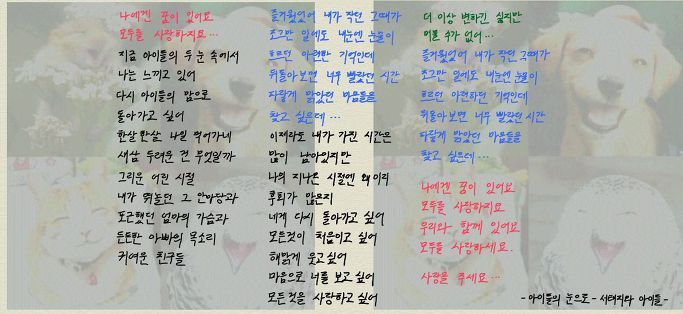 나에겐 꿈이 있어요
모두를 사랑하지요...
지금 아이들의 두 눈 속에서
나는 느끼고 있어
다시 아이들의 맘으로
돌아가고 싶어
한살 한살 나일 먹어가네
새삼 두려운 건 무엇일까
그리운 어린 시절
내가 뛰놀던 그 안마당과
포근했던 엄마의 가슴과
든든한 아빠의 목소리
귀여운 친구들
즐거웠었어 내가 작던 그때가
조그만 일에도 내눈엔 눈물이
흐르던 아련한 기억인데
뒤돌아 보면 너무 빨랐던 시간
파랗게 맑았던 마음들을
찾고 싶은데...
이제라도 내가 가진 시간은
많이 남아있지만
나의 지나온 시절엔 왜 이리
후회가 많은지
네게 다시 돌아가고 싶어
모든것이 처음이고 싶어
해맑게 웃고싶어
마음으로 너를 보고 싶어
모든것을 사랑하고 싶어
더 이상 변하긴 싫지만
어쩔 수가 없어...
즐거웠었어 내가 작던 그때가
조그만 일에도 내눈엔 눈물이
흐르던 아련하던 기억인데
뒤돌아 보면 너무 빨랐던 시간
파랗게 맑았던 마음들을
찾고 싶은데...
나에겐 꿈이 있어요
모두를 사랑하지요
우리와 함께 있어요
모두를 사랑하세요.
사랑을 주세요...
- 아이들의 눈으로 - 서태지와 아이들 -